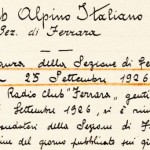 ub Alpino Italiano
Sez. di Ferrara
anza della Sezione di Fe
25 Settembre 1926
Radio Club "Ferrara" genti
Settembre 1926, si è riu
della Sezione di F
ine del giorno pubblicato sui gi